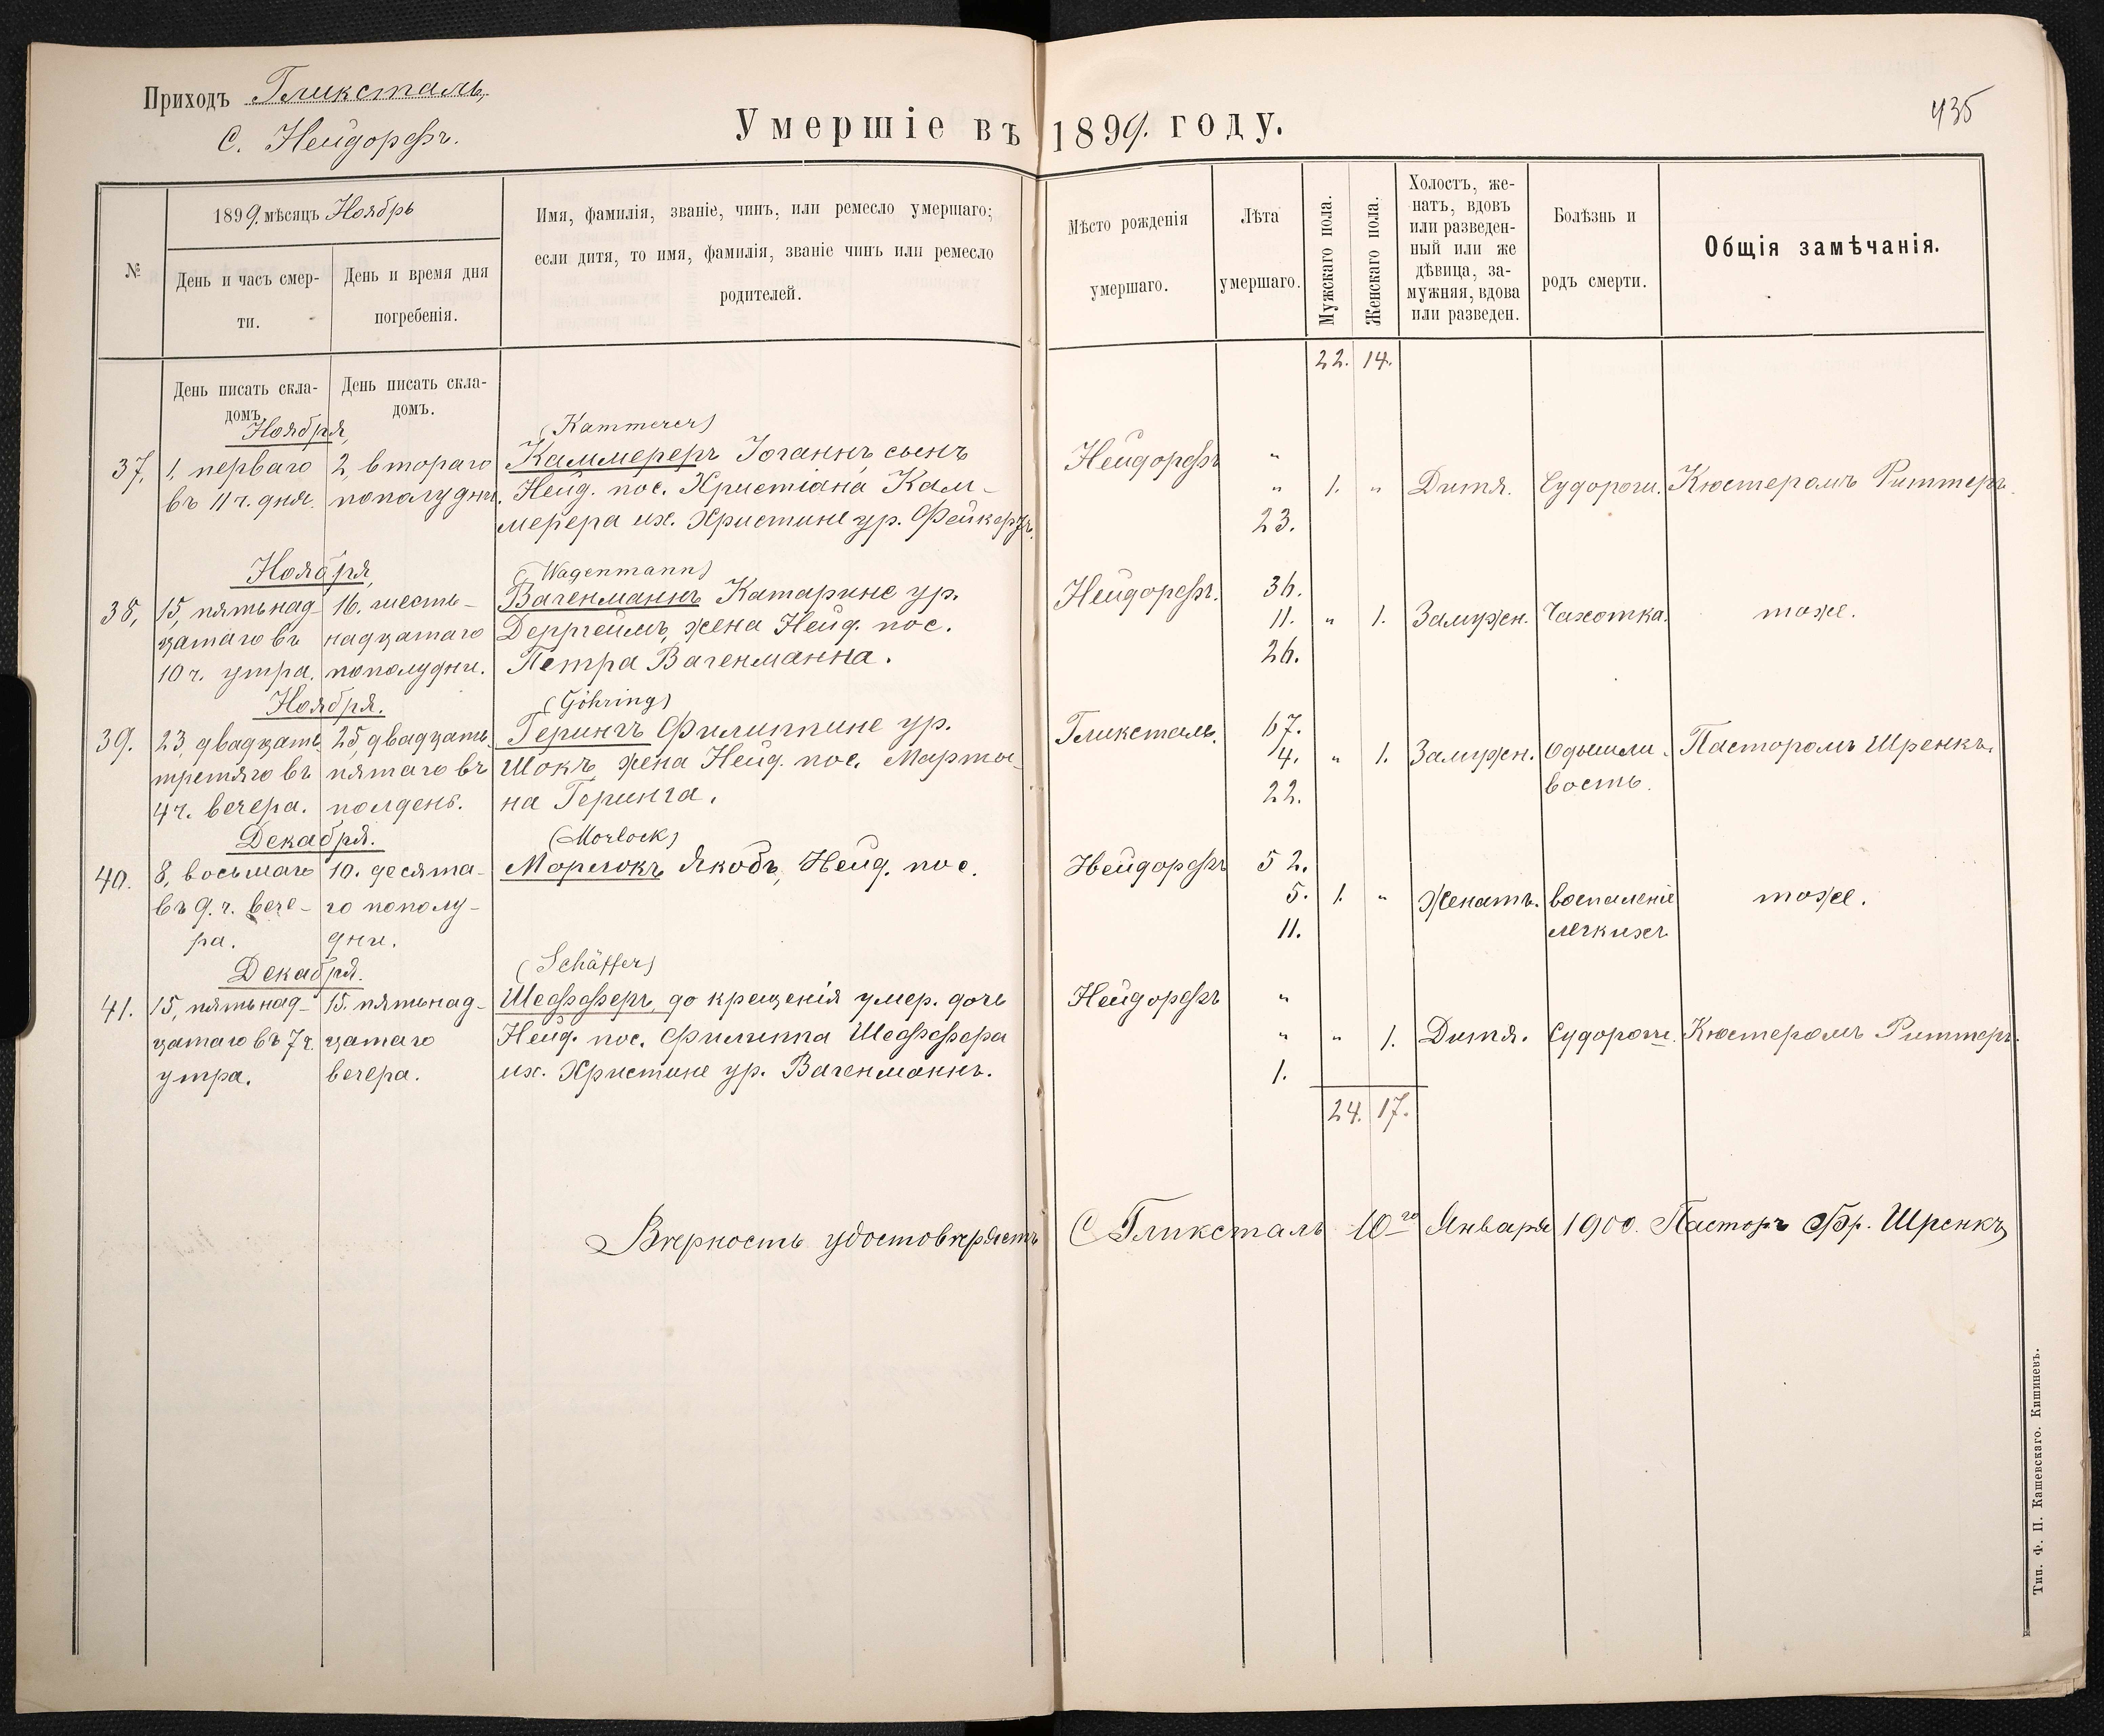 Приходъ Гликсталь,
С. Нейдорфъ.
Умершіе въ 1899. году.
435
№
1899. мѣсяцъ Ноябрь
День и часъ смер-
ти.
День и время дня
погребенія.
Имя, фамилія, званіе, чинъ, или ремесло умершаго;
если дитя, то имя, фамилія, званіе чинъ или ремесло
родителей.
Мѣсто рожденія
умершаго.
Лѣта
умершаго.
Мужскаго пола.
Женскаго пола.
Холостъ, же-
натъ, вдовъ
или разведен-
ный или же
дѣвица, за-
мужняя, вдова
или разведен.
Болѣзнь и
родъ смерти.
Общія замѣчанія.
22. 14.
День писать скла-
домъ.
День писать скла-
домъ.
Ноября,
37, 1, перваго
въ 11 ч. дня.
2, втораго
пополудни.
(Kammerer)
Каммереръ Іоганнъ сынъ
Нейд. пос. Христіана Кам-
мерера их. Христине ур.
Нейдорфъ
" " 23.
1. "
Дитя.
Судороги.
Кюстеромъ Риттеръ.
Ноября,
38, 15, пятьнад-
цатаго въ
10 ч. утра.
16. шесть-
надцатаго
пополудни.
(Wagenmann)
Вагенманнъ Катарине ур.
Дерргеймъ, жена Нейд. пос.
Петра Вагенманна.
Нейдорфъ.
36.
11.
26.
" 1.
Замужн.
Чахотка.
тоже.
Ноября.
39. 23, двадцать
третяго въ
4 ч. вечера.
25, двадцать
пятаго въ
полдень.
(Göhring)
Герингъ Филиппине ур.
Шокъ, жена Нейд. пос. Марты-
на Геринга.
Гликсталь.
67.
4.
22.
" 1.
Замужн.
Одышли-
вость.
Пасторомъ Шренкъ.
Декабря.
40. 8, восьмаго
въ 9. ч. вече-
ра.
10. десята-
го пополу-
дни.
(Morlock)
Морлокъ Якобъ, Нейд. пос.
Нейдорфъ
52.
5.
11.
1. "
Женатъ.
воспаленіе
легкихъ
тоже.
Декабря.
41. 15, пятьнад-
цатаго въ 7 ч.
утра.
15. пятьнад-
цатаго
вечера.
(Schäffer)
Шефферъ, до крещенія умер. дочь
Нейд. пос. Филиппа Шеффера
их. Христине ур. Вагенманнъ.
Нейдорфъ
" " 1.
" 1.
Дитя.
Судороги.
Кюстеромъ Риттеръ.
24. 17.
Вѣрность удостовѣряетъ С Гликсталь 10го Января 1900. Пасторъ Фр. Шренкъ
Тип. Ф. П. Кашевскаго. Кишиневъ.